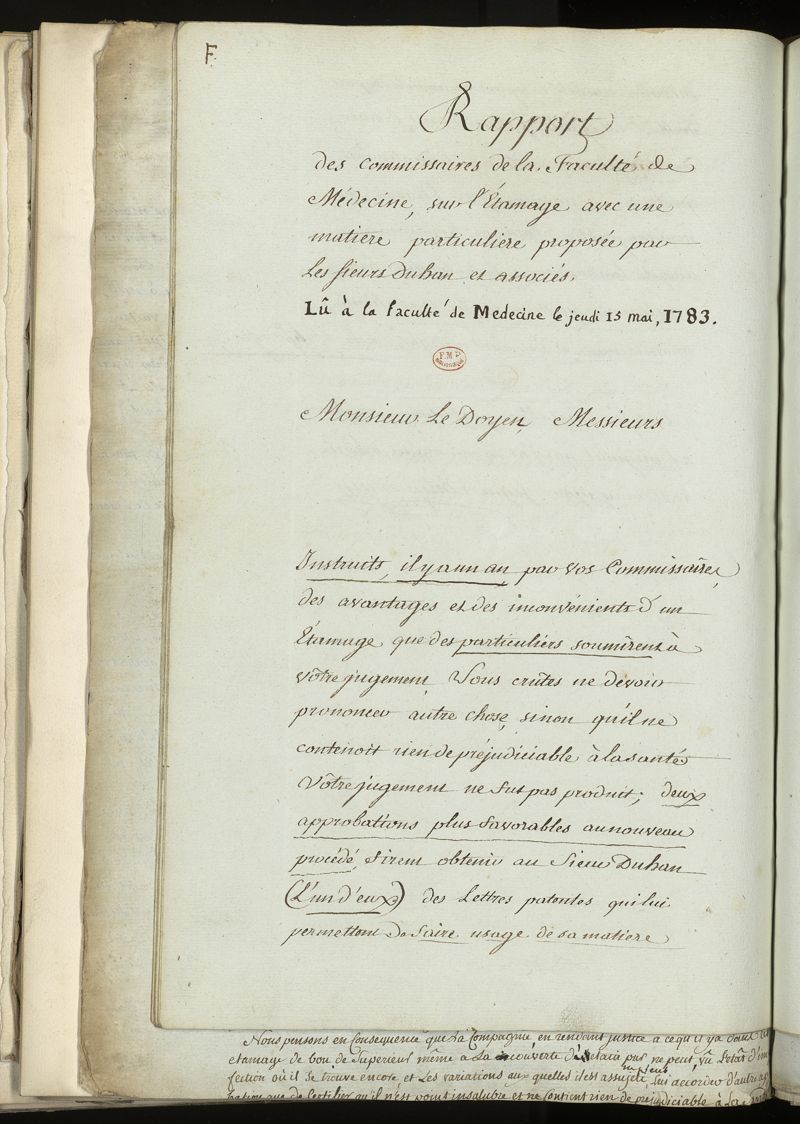 F
Rapport
des commissaires de la Faculté de
Médecine, sur l'Étamage avec une
matiere particuliere proposée par
Les sieurs Duhan et associés.
Lû à la faculté de Medecine le jeudi 15 mai, 1783.
Monsieur Le Doyen, Messieurs
Instruits, il y a un an par vos Commissaires,
des avantages et des inconvénients d'un
Étamage que des particuliers soumirent à
vôtre jugement, Vous crûtes ne devoir
prononcer autre chose, sinon qu'il ne
contenoit rien de préjudiciable à la santé
Vôtre jugement ne fut pas produit; deux
approbations plus favorables au nouveau
procédé, firent obtenir au Sieur Duhan
(L'un d'eux) des Lettres patentes qui lui
permettent de faire usage de sa matiere
Nous pensons en Conséquence que la Compagnie, en rendant justice a ce qu'il y a dans
etamage de bon de Superieur même à La découverte de, ne peut, vû l'etât d'im
fection où il se trouve encore, et Les variations aux quelles il est assujeti, lui accorder d'autre
que de Certifier qu'il n'est point insalubre et ne Contient rien de préjudiciable à La